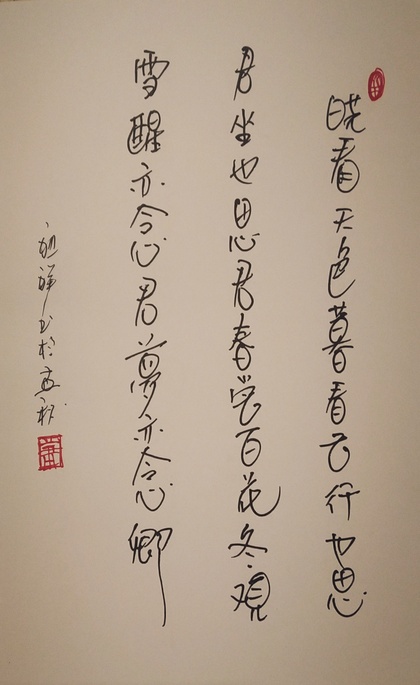 晓看天色暮看云行也思
君坐也思君春赏百花冬观
雪醒亦念君夢亦念卿
祥书於